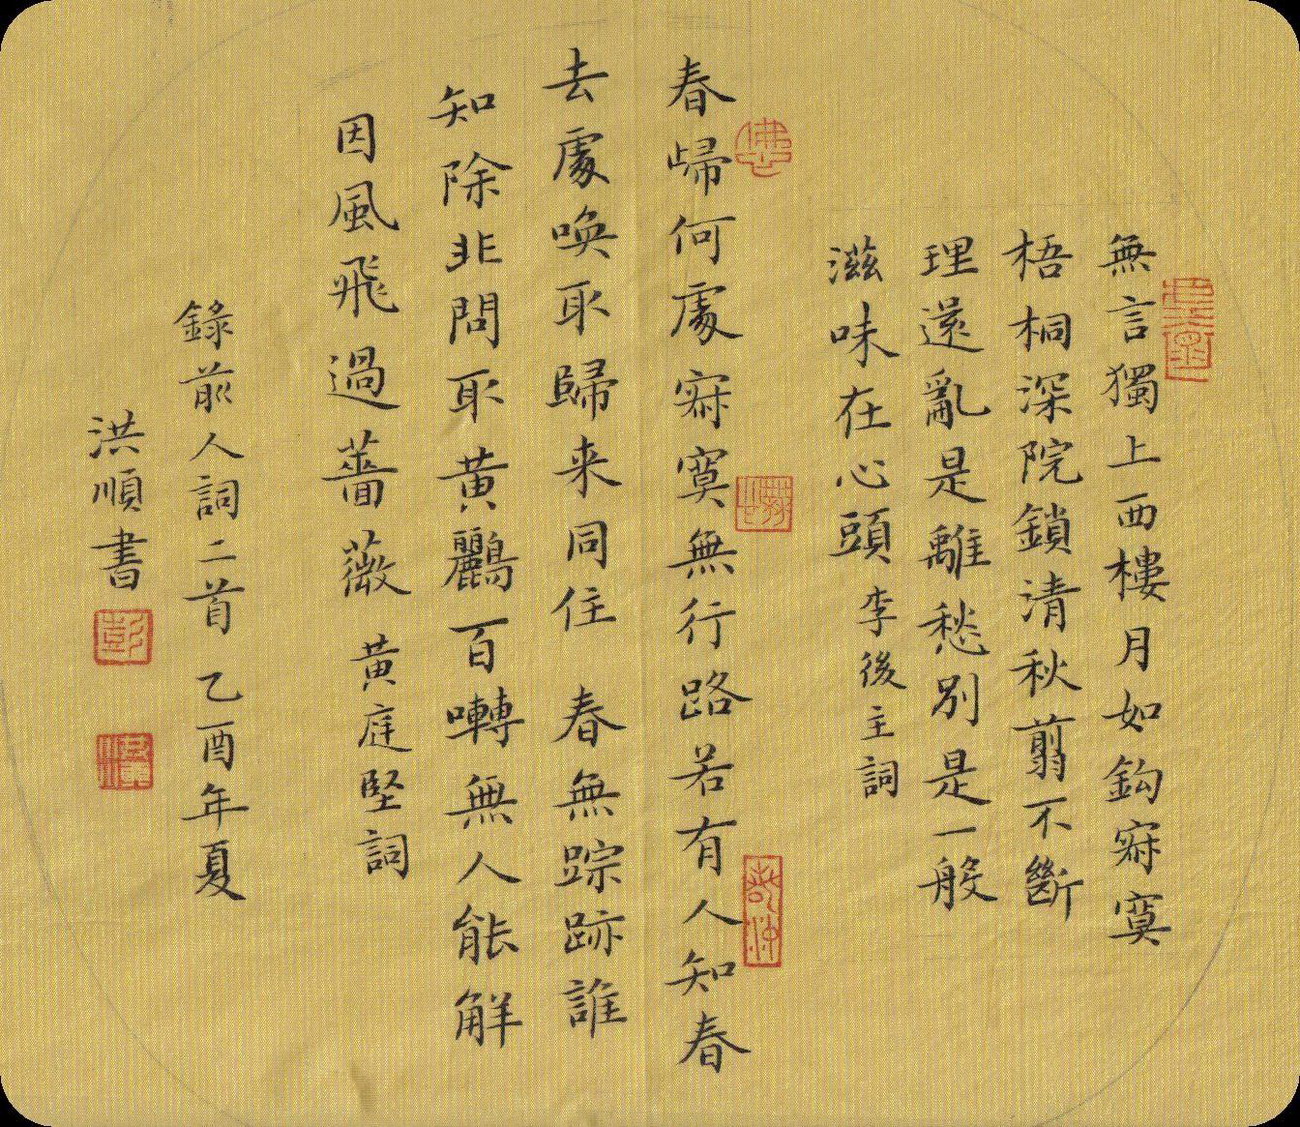 無言獨上西樓月如鈎寂寞
梧桐深院鎖清秋翦不斷
理還亂是離愁別是一般
滋味在心頭 李後主詞
春歸何處寂寞無行路若有人知春
去處喚取歸来同住 春無踪跡誰
知除非問取黃鸝百囀無人能解
因風飛過薔薇 黃庭堅詞
錄前人詞二首 乙酉年夏
洪順書
彭